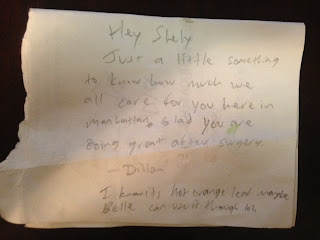 Hey Shely
Just a little something
to know how much we
all care for you here in
manhattan, glad you are
Doing great after surgery.
— Dillon
I know its not orange leaf maybe
Belle can use it through lol.